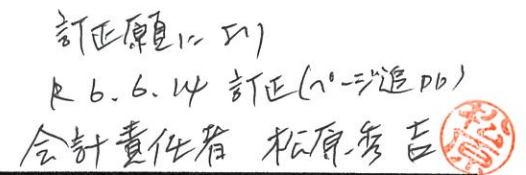 訂正願により
R6.6.14 訂正(ページ追加)
会計責任者 松原秀吉
松原